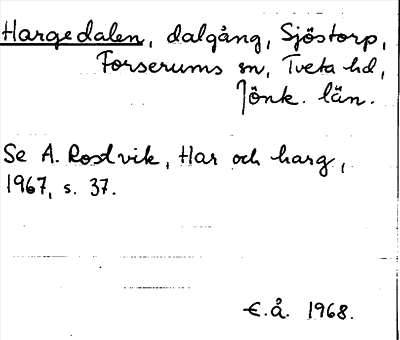 Hargedalen, dalgång, Sjöstorp,
Forserums sn, Tveta hd,
Jönk. län.
Se A. Rostvik, Har och harg,
1967, s. 37.
E.å. 1968.